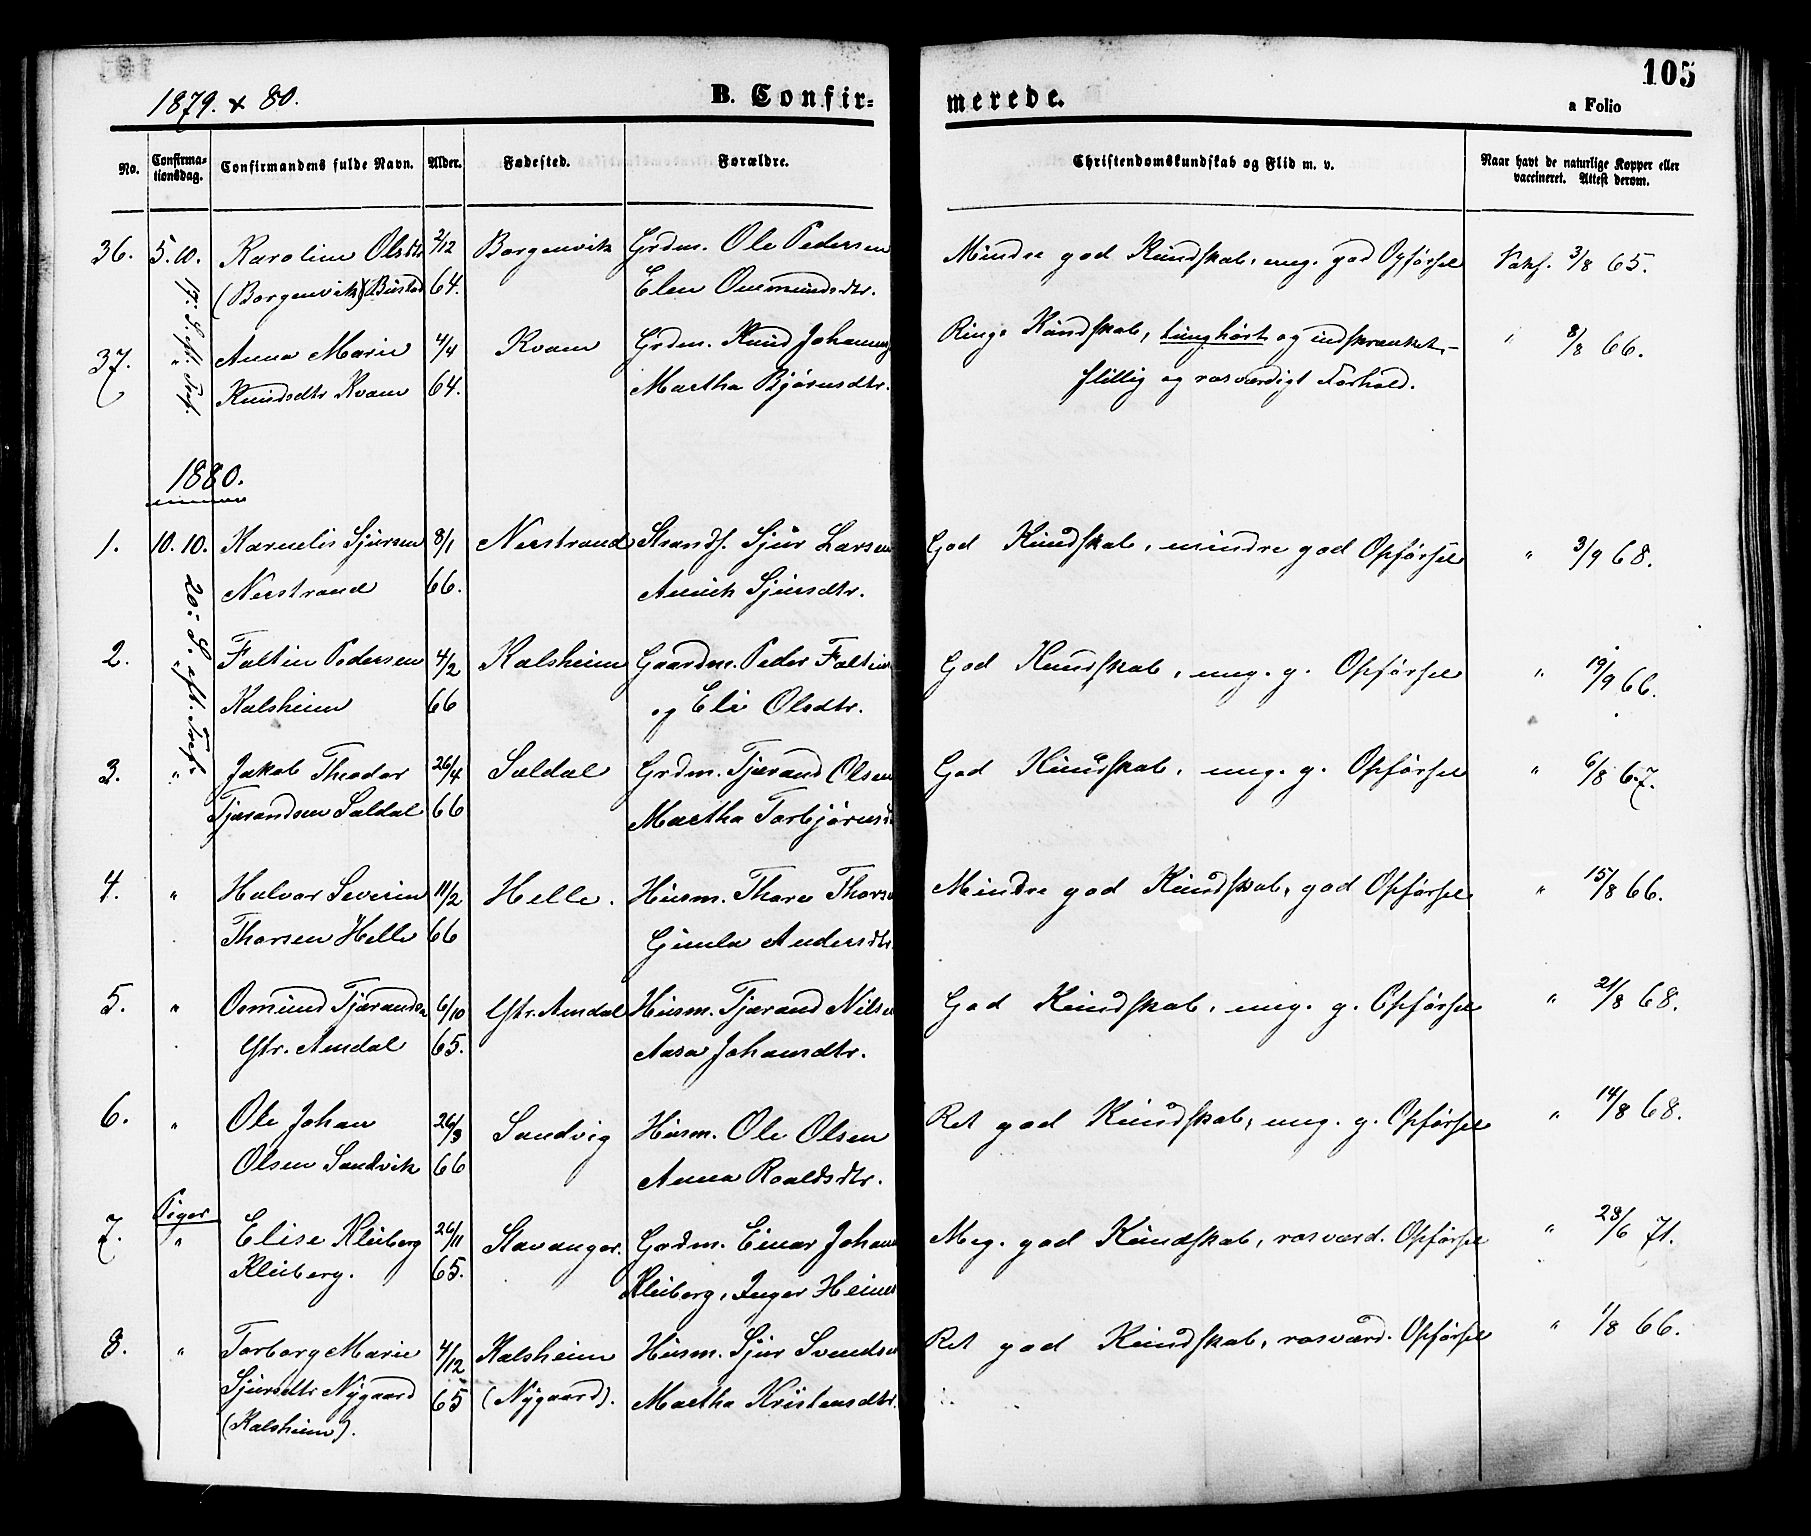 105
1879. & 80.
B. Confirmerede.
a Folio
No.
Confirmationsdag.
Confirmandens fulde Navn.
Alder.
Fødested.
Forældre.
Christendomskundskab og Flid m. v.
Naar havt de naturlige Kopper eller vaccineret. Attest derom.
36. 5.10. Karoline Olsdtr 2/12 Borgenvik Grdm. Ole Pedersen Mindre god Kundskab, meg. god Opførsel Vakc. 3/8 65.
(Borgenvik) (Bustad 64. Elen Osmundsdtr.
17. S. eft. Tref.
37. " Anna Marie 4/4 Kvam Grdm. Knud Johannes Ringe Kundskab, tunghørt og indskrænket,- " 8/8 66.
Knudsdtr Kvam 64. Martha Bjørnsdtr. flittig og rosværdigt Forhold.
1880.
1. 10.10. Kornelis Sjursen 8/1 Nerstrand Strands. Sjur Larsen God Kundskab, mindre god Opførsel " 3/9 68.
Nerstrand 66. Anna Sjursdtr.
20. S. eft. Tref.
2. " Faltin Pedersen 4/2 Kalsheim Gaardm. Peder Faltin God Kundskab, meg. g. Opførsel " 19/9 66.
Kalsheim 66 og Eli Olsdtr.
3. " Jakob Theodor 26/4 Saldal Grdm. Tjærand Olsen God Kundskab, meg. g. Opførsel " 6/8 67.
Tjærandsen Saldal 66 Martha Torbjørnsd
4. " Halvor Severin 11/2 Helle. Husm. Thore Thorse Mindre god Kundskab, god Opførsel " 15/8 66.
Thorsen Helle 66 Gunla Andersdtr.
5. " Osmund Tjærandse 6/10 Ystr. Amdal Husm. Tjærand Nilse God Kundskab, meg. g. Opførsel " 21/8 68.
Ystr. Amdal 65. Aasa Johansdtr.
6. " Ole Johan 26/3 Sandvig Husm. Ole Olsen Ret god Kundskab, meg. g. Opførsel " 14/8 68.
Olsen Sandvik 66 Anna Roaldsdtr.
Piger
7. " Elise Kleiberg 26/11 Stavanger. Grdm. Einar Johan Meg. god Kundskab, rosværd. Opførsel " 28/6 71.
Kleiberg. 65. Kleiberg, Inger Heine
8. " Torborg Marie 4/12 Kalsheim Husm. Sjur Svendse Ret god Kundskab, rosværd. Opførsel " 1/8 66.
Sjursdtr Nygaard 65 (Nygaard). Martha Kristensdtr.
(Kalsheim).